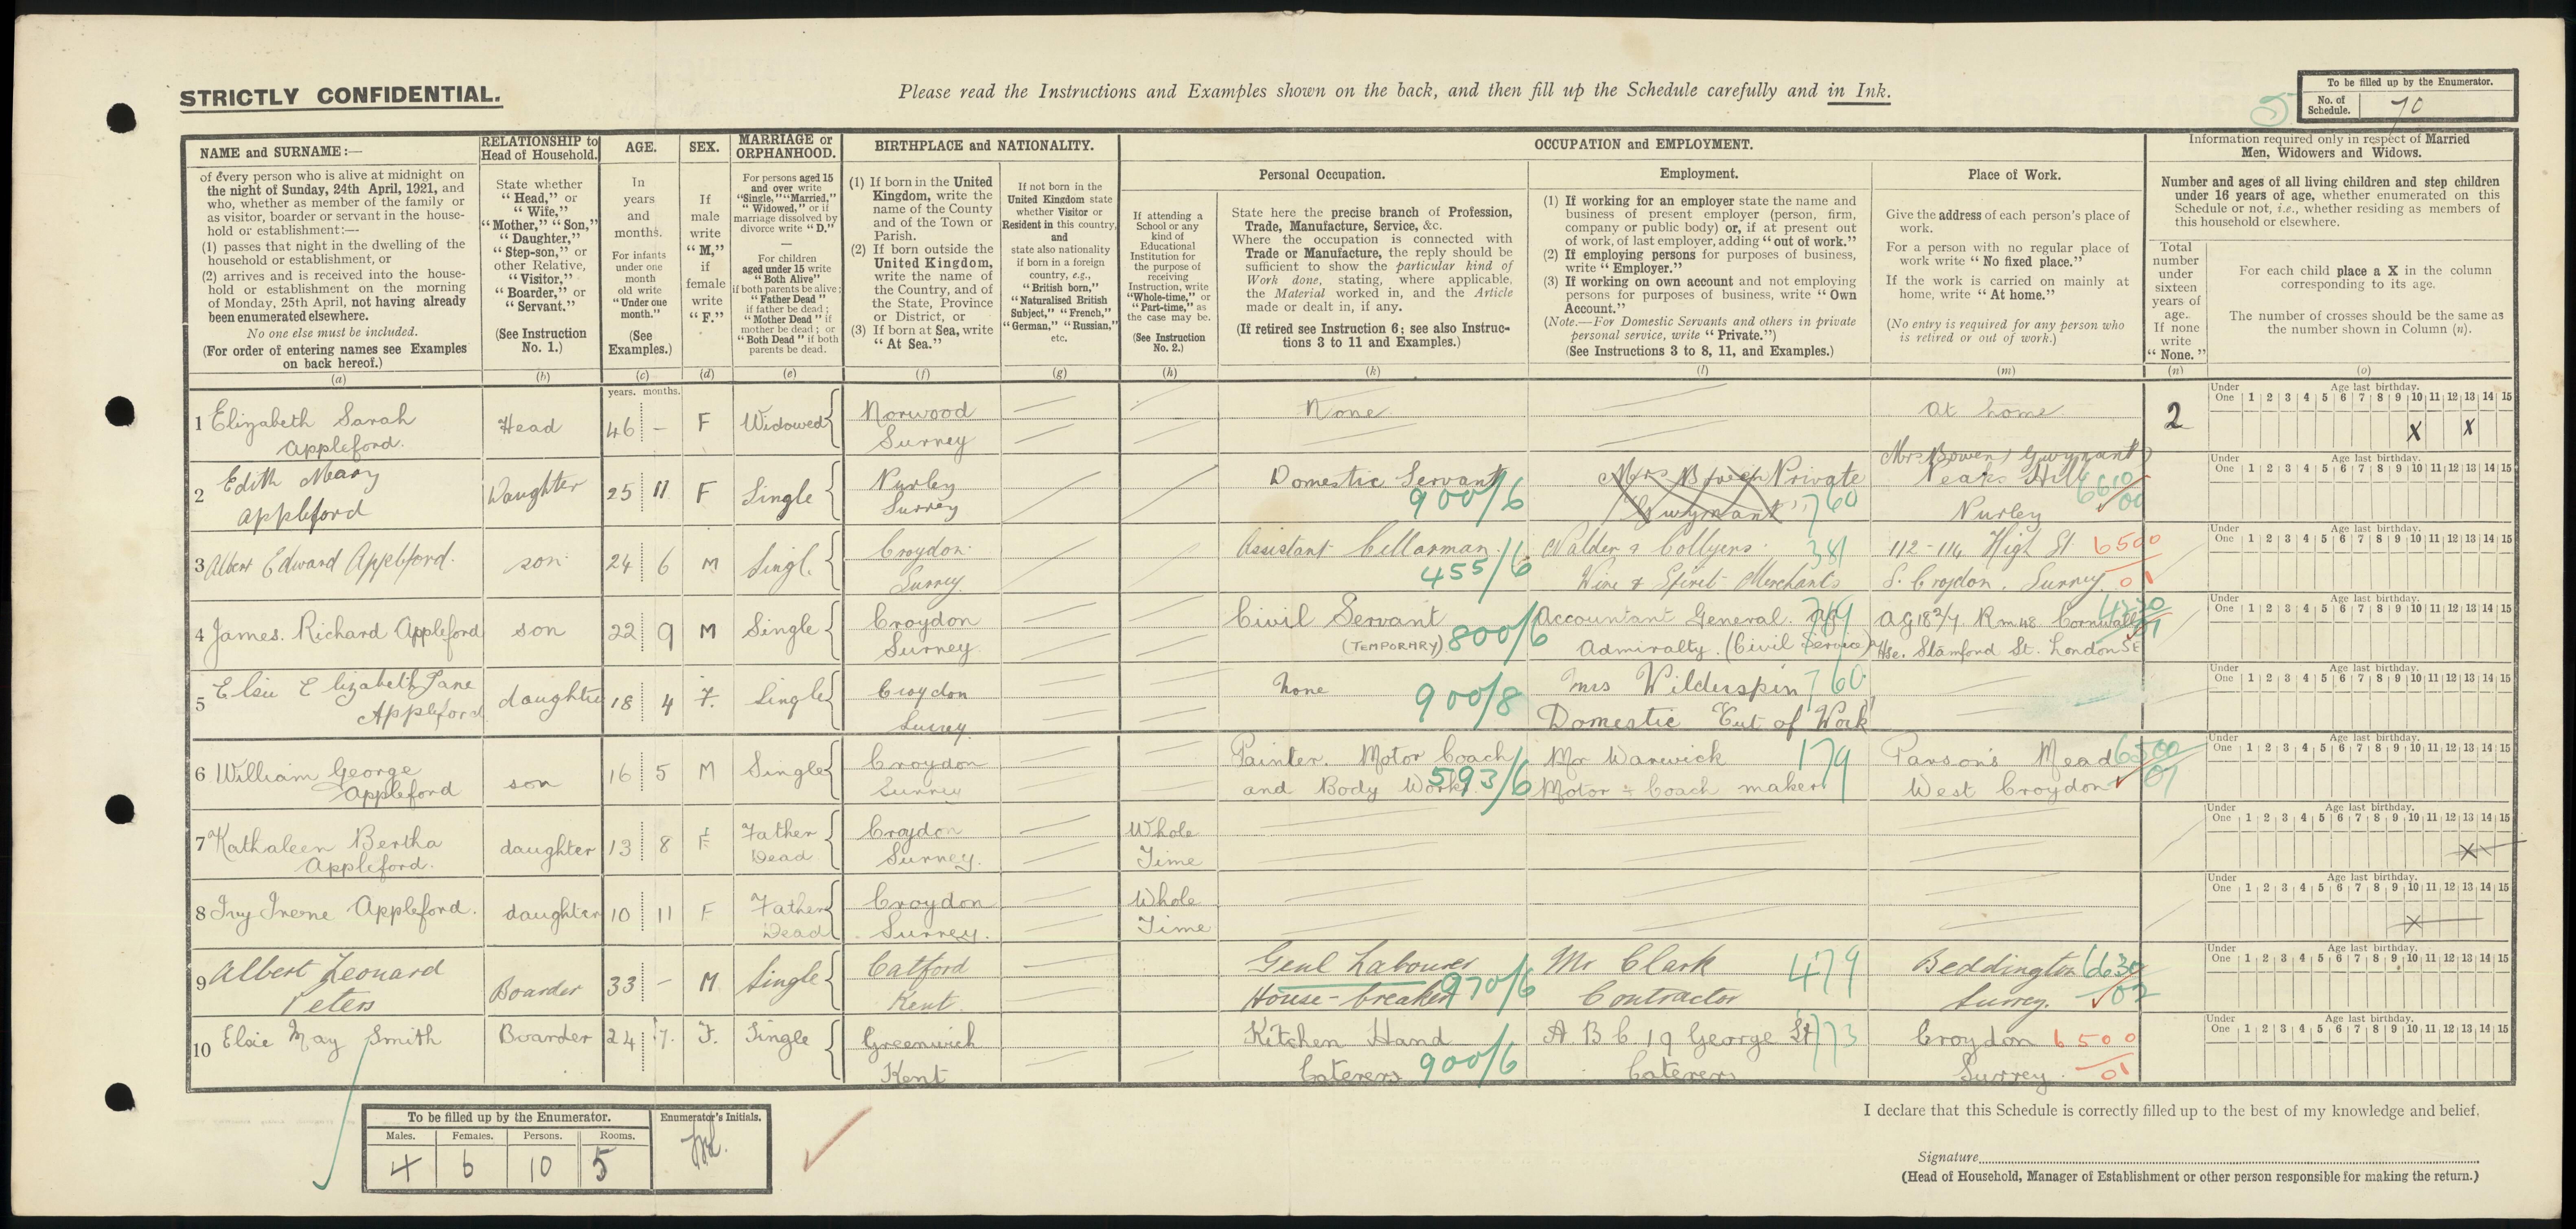 STRICTLY CONFIDENTIAL.
Please read the Instructions and Examples shown on the back, and then fill up the Schedule carefully and in Ink.
To be filled up by the Enumerator.
No. of Schedule. 70
5
NAME and SURNAME:—
of every person who is alive at midnight on
the night of Sunday, 24th April, 1921, and
who, whether as member of the family or
as visitor, boarder or servant in the house-
hold or establishment:—
(1) passes that night in the dwelling of the
household or establishment, or
(2) arrives and is received into the house-
hold or establishment on the morning
of Monday, 25th April, not having already
been enumerated elsewhere.
No one else must be included.
(For order of entering names see Examples
on back hereof.)
(a)
RELATIONSHIP to
Head of Household.
State whether
"Head," or
"Wife,"
"Mother," "Son,"
"Daughter,"
"Step-son," or
other Relative,
"Visitor,"
"Boarder," or
"Servant."
(See Instruction
No. 1.)
(b)
AGE.
In
years
and
months.
For infants
under one
month
old write
"Under one
month."
(See
Examples.)
(c)
SEX.
If
male
write
"M,"
if
female
write
"F."
(d)
MARRIAGE or
ORPHANHOOD.
For persons aged 15
and over write
"Single," "Married,"
"Widowed," or if
marriage dissolved by
divorce write "D."
—
For children
aged under 15 write
"Both Alive"
if both parents be alive;
"Father Dead"
if father be dead;
"Mother Dead" if
mother be dead; or
"Both Dead" if both
parents be dead.
(e)
BIRTHPLACE and NATIONALITY.
(1) If born in the United
Kingdom, write the
name of the County
and of the Town or
Parish.
(2) If born outside the
United Kingdom,
write the name of
the Country, and of
the State, Province
or District, or
(3) If born at Sea, write
"At Sea."
(f)
If not born in the
United Kingdom state
whether Visitor or
Resident in this country,
and
state also nationality
if born in a foreign
country, e.g.,
"British born,"
"Naturalised British
Subject," "French,"
"German," "Russian,"
etc.
(g)
OCCUPATION and EMPLOYMENT.
If attending a
School or any
kind of
Educational
Institution for
the purpose of
receiving
Instruction, write
"Whole-time," or
"Part-time," as
the case may be.
(See Instruction
No. 2.)
(h)
Personal Occupation.
State here the precise branch of Profession,
Trade, Manufacture, Service, &c.
Where the occupation is connected with
Trade or Manufacture, the reply should be
sufficient to show the particular kind of
Work done, stating, where applicable,
the Material worked in, and the Article
made or dealt in, if any.
(If retired see Instruction 6; see also Instruc-
tions 3 to 11 and Examples.)
(k)
Employment.
(1) If working for an employer state the name and
business of present employer (person, firm,
company or public body) or, if at present out
of work, of last employer, adding "out of work."
(2) If employing persons for purposes of business,
write "Employer."
(3) If working on own account and not employing
persons for purposes of business, write "Own
Account."
(Note.—For Domestic Servants and others in private
personal service, write "Private.")
(See Instructions 3 to 8, 11, and Examples.)
(l)
Place of Work.
Give the address of each person's place of
work.
For a person with no regular place of
work write "No fixed place."
If the work is carried on mainly at
home, write "At home."
(No entry is required for any person who
is retired or out of work.)
(m)
Information required only in respect of Married
Men, Widowers and Widows.
Number and ages of all living children and step children
under 16 years of age, whether enumerated on this
Schedule or not, i.e., whether residing as members of
this household or elsewhere.
Total
number
under
sixteen
years of
age.
If none
write
"None."
(n)
For each child place a X in the column
corresponding to its age.
The number of crosses should be the same as
the number shown in Column (n).
(o)
years. months.
Under One 1 2 3 4 5 6 7 8 9 10 11 12 13 14 15
Age last birthday.
1 Elizabeth Sarah Appleford. Head 46 – F Widowed Norwood Surrey None At home 2 X X
Under One 1 2 3 4 5 6 7 8 9 10 11 12 13 14 15
Age last birthday.
2 Edith Mary Appleford Daughter 25 11 F Single Purley Surrey Domestic Servant 900/6 Mrs Bowen Private Gwynant 760 Mrs Bowen, Gwynant Peaks Hill Purley 6610 00
Under One 1 2 3 4 5 6 7 8 9 10 11 12 13 14 15
Age last birthday.
3 Albert Edward Appleford. son 24 6 M Singl. Croydon. Surrey. Assistant Cellarman. 455/6 Walder & Collyers. 381 Wine & Spirit Merchants 112-114 High St S. Croydon. Surrey 6500 01
Under One 1 2 3 4 5 6 7 8 9 10 11 12 13 14 15
Age last birthday.
4 James. Richard Appleford son 22 9 M Single Croydon Surrey. Civil Servant (TEMPORARY) 800/6 Accountant General. Admiralty. (Civil Service) Rm 48. Cornwall Hse. Stamford St. London SE
Under One 1 2 3 4 5 6 7 8 9 10 11 12 13 14 15
Age last birthday.
5 Elsie Elizabeth Jane Appleford daughter 18 4 F. Single Croydon Surrey None 900/8 Mrs Wilderspin 760 Domestic Out of Work
Under One 1 2 3 4 5 6 7 8 9 10 11 12 13 14 15
Age last birthday.
6 William George Appleford son 16 5 M Single Croydon Surrey Painter. Motor Coach and Body Work. 593/6 Mr Warwick 179 Motor & Coach maker Parson's Mead West Croydon 6500 01
Under One 1 2 3 4 5 6 7 8 9 10 11 12 13 14 15
Age last birthday.
7 Kathaleen Bertha Appleford. daughter 13 8 F Father Dead Croydon Surrey. Whole Time X
Under One 1 2 3 4 5 6 7 8 9 10 11 12 13 14 15
Age last birthday.
8 Ivy Irene Appleford. daughter 10 11 F Father Dead Croydon Surrey. Whole Time X
Under One 1 2 3 4 5 6 7 8 9 10 11 12 13 14 15
Age last birthday.
9 Albert Leonard Peters Boarder 33 – M Single Catford Kent. Genl Labourer House-breaker 970/6 Mr Clark 479 Contractor Beddington Surrey. 6630 02
Under One 1 2 3 4 5 6 7 8 9 10 11 12 13 14 15
Age last birthday.
10 Elsie May Smith Boarder 24 7. F. Single Greenwich Kent Kitchen Hand Caterers 900/6 A.B.C 19 George St 773 Caterers Croydon Surrey. 6500 01
To be filled up by the Enumerator.
Males. Females. Persons. Rooms.
4 6 10 5
Enumerator's Initials.
I declare that this Schedule is correctly filled up to the best of my knowledge and belief.
Signature
(Head of Household, Manager of Establishment or other person responsible for making the return.)